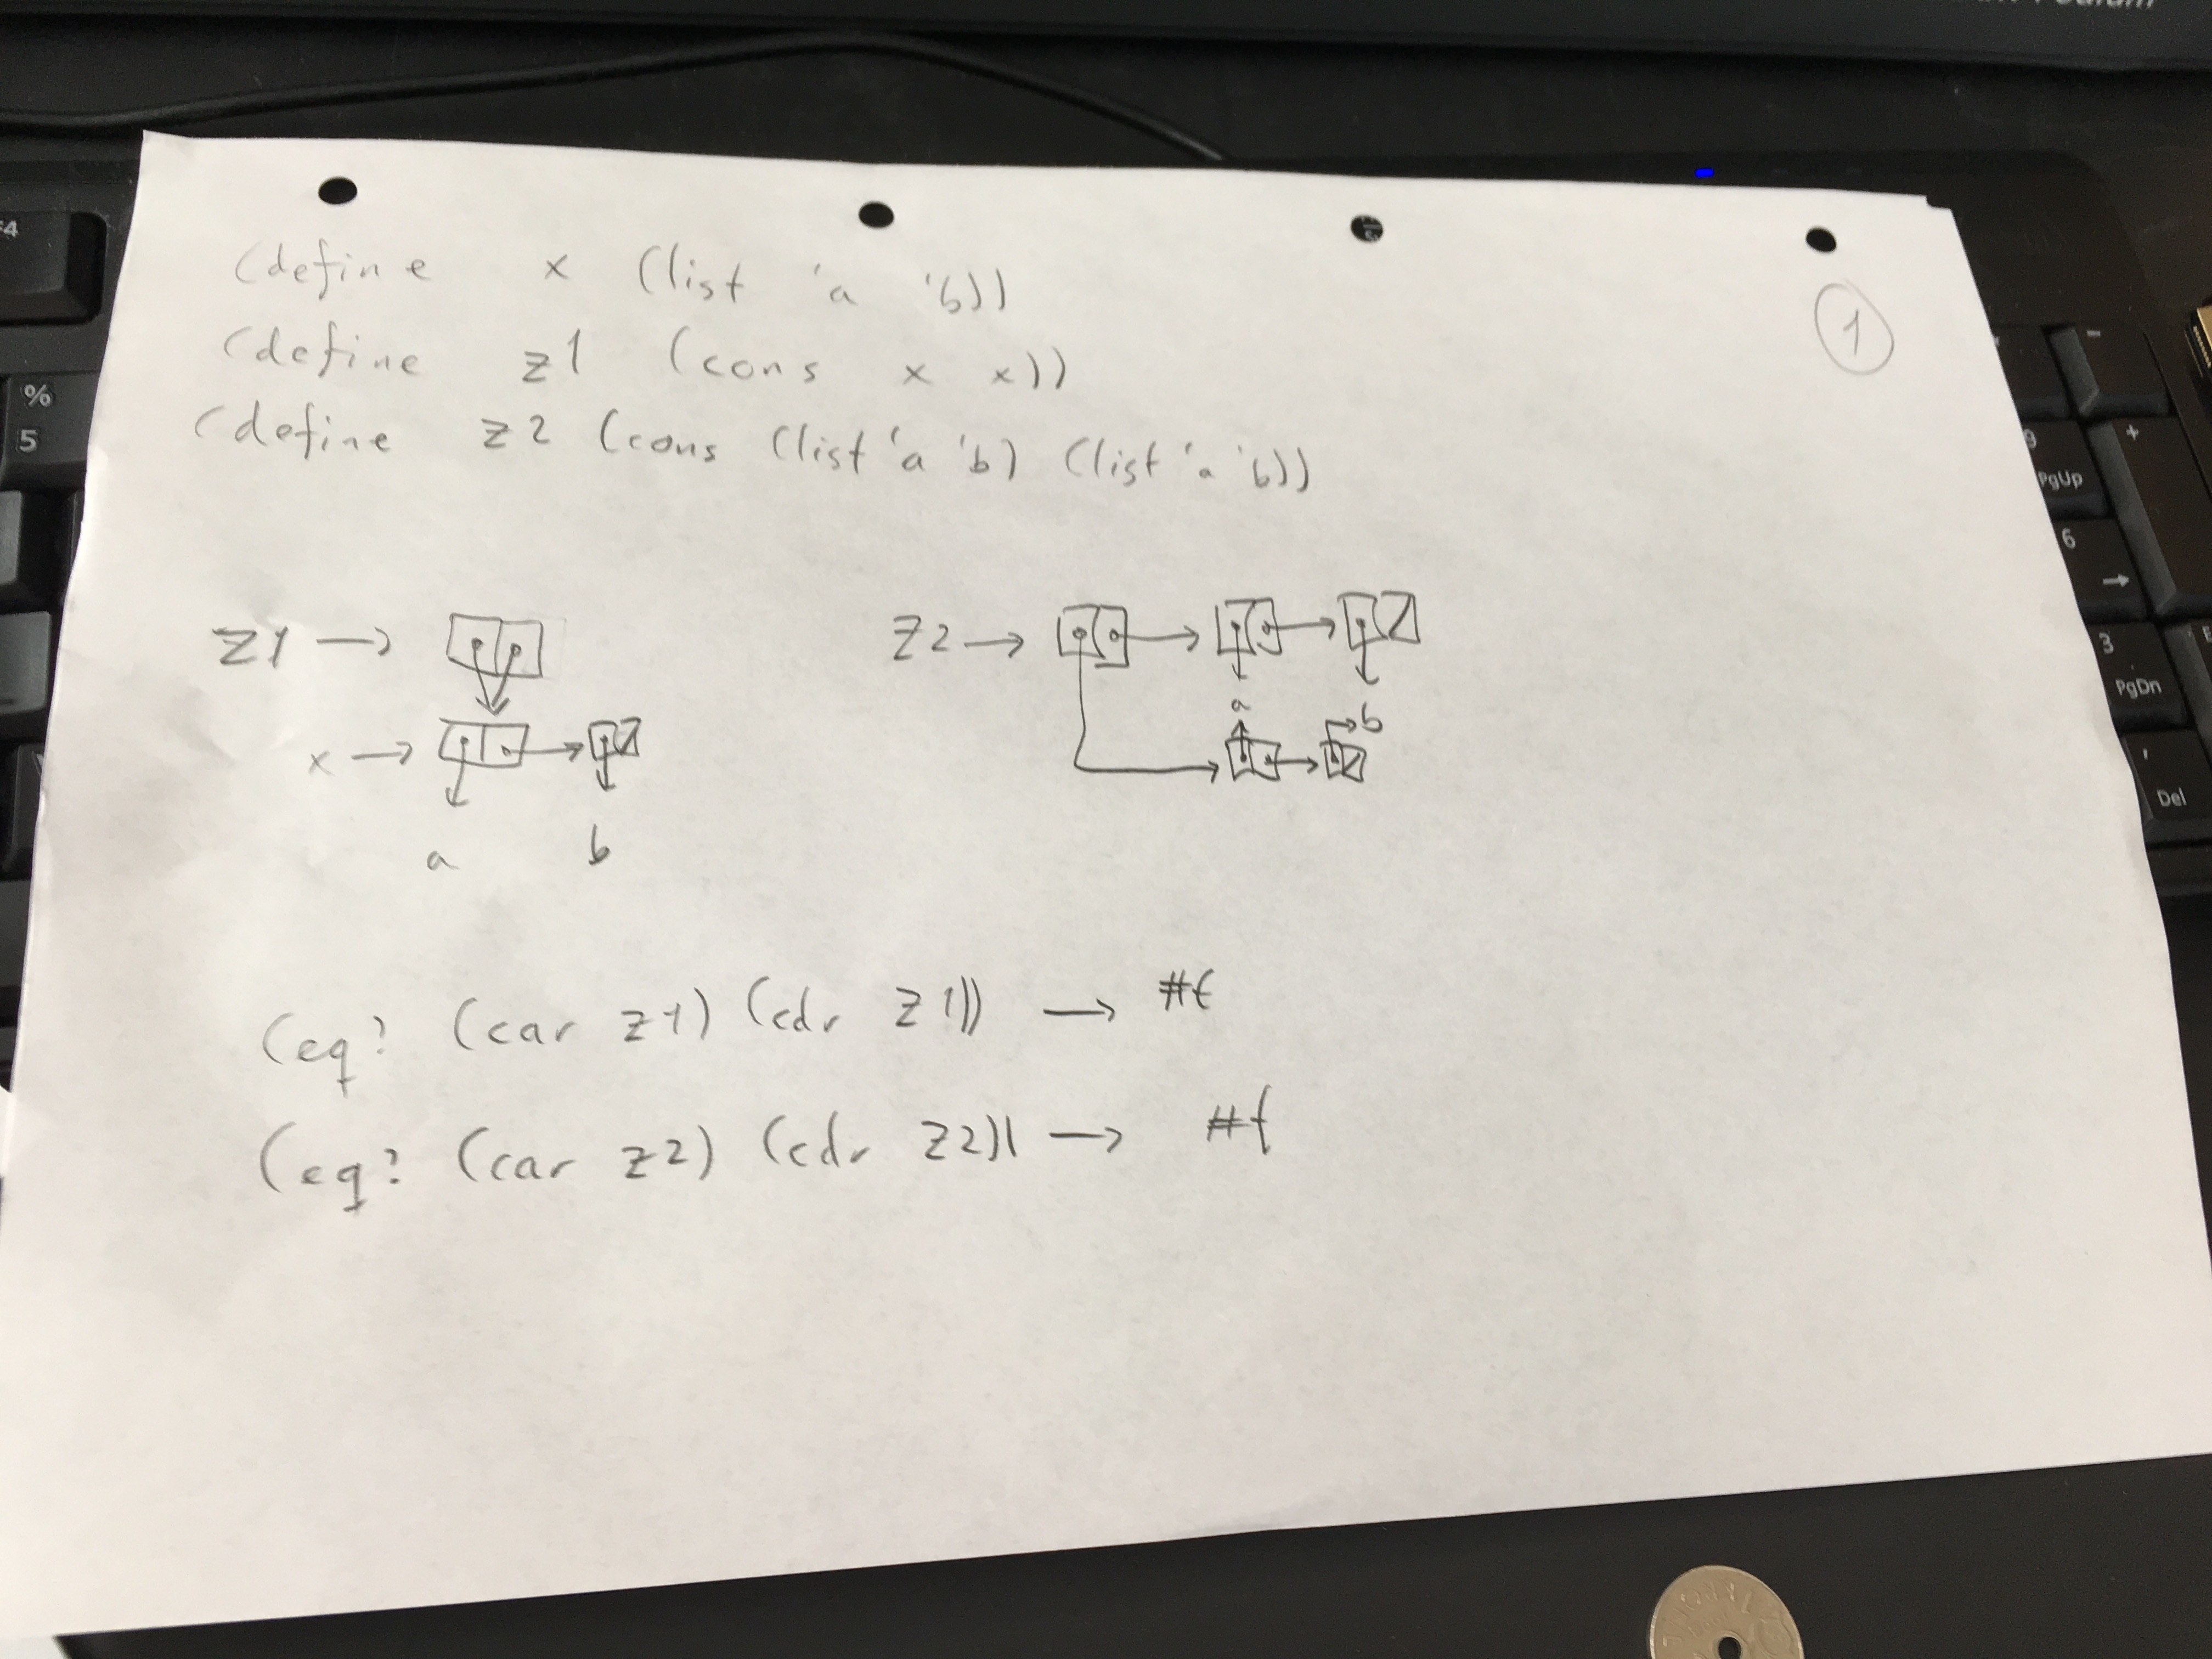 (define x (list 'a 'b))
(define z1 (cons x x))
(define z2 (cons (list 'a 'b) (list 'a 'b))
1
z1 → z2 →
a
b
x →
a b
(eq? (car z1) (cdr z1)) → #t
(eq? (car z2) (cdr z2)) → #f
F4
%
5
-
+
9
PgUp
6
→
3
PgDn
.
Del